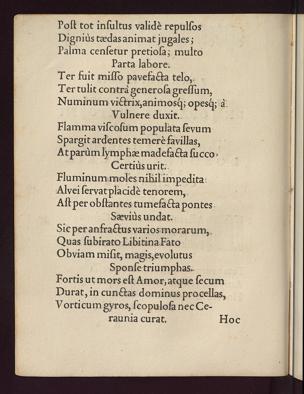 Post tot insultus validè repulsos
Digniùs tædas animat jugales;
Palma censetur pretiosa; multo
Parta labore.
Ter fuit misso pavefacta telo,
Ter tulit contrà generosa gressum,
Numinum victrix, animosq; opesq; à
Vulnere duxit.
Flamma viscosum populata sevum
Spargit ardentes temerè favillas,
At parùm lymphæ madefacta succo
Certiùs urit.
Fluminum moles nihil impedita
Alvei servat placidè tenorem,
Ast per obstantes tumefacta pontes
Sæviùs undat.
Sic per anfractus varios morarum,
Quas subirato Libitina Fato
Obviam misit, magis, evolutus
Sponse triumphas.
Fortis ut mors est Amor, atque secum
Durat, in cunctas dominus procellas,
Vorticum gyros, scopulosa nec Ce-
raunia curat. Hoc